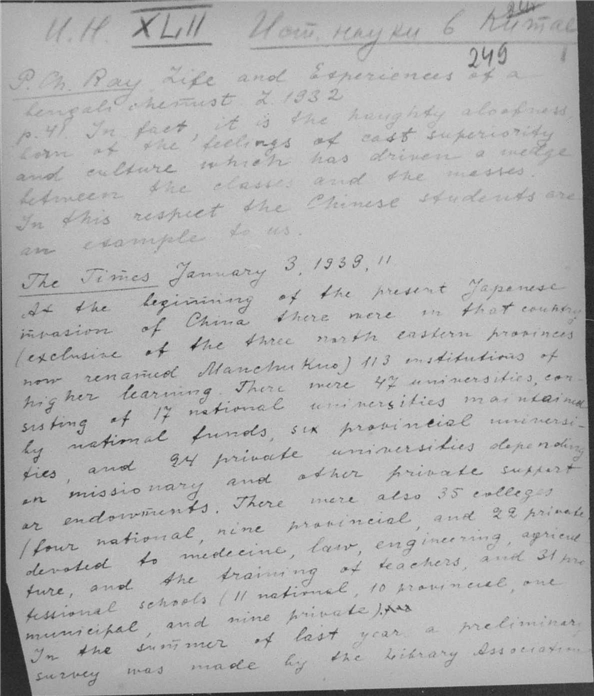 И.Н. XLII Ист. науки в Китае
249
P. Ch. Ray. Life and Experiences of a
bengali chemist L 1932
p. 41. In fact, it is the haughty aloofness
born of the feelings of cast superiority
and culture which has driven a wedge
between the classes and the masses.
In this respect the Chinese students are
an example to us.
The Times January 3, 1939, 11.
At the beginning of the present Japanese
invasion of China there were in that country
(exclusive of the three north eastern provinces
now renamed Manchukuo) 113 institutions of
higher learning. There were 47 universities, con-
sisting of 17 national universities maintained
by national funds, six provincial universi-
ties, and 24 private universities depending
on missionary and other private support
or endowments. There were also 35 colleges
(four national, nine provincial, and 22 private)
devoted to medecine, law, engineering, agricul
ture, and the training of teachers, and 31 pro
fessional schools (11 national, 10 provincial, one
municipal, and nine private).
In the summer of last year a preliminary
survey was made by the Library Association